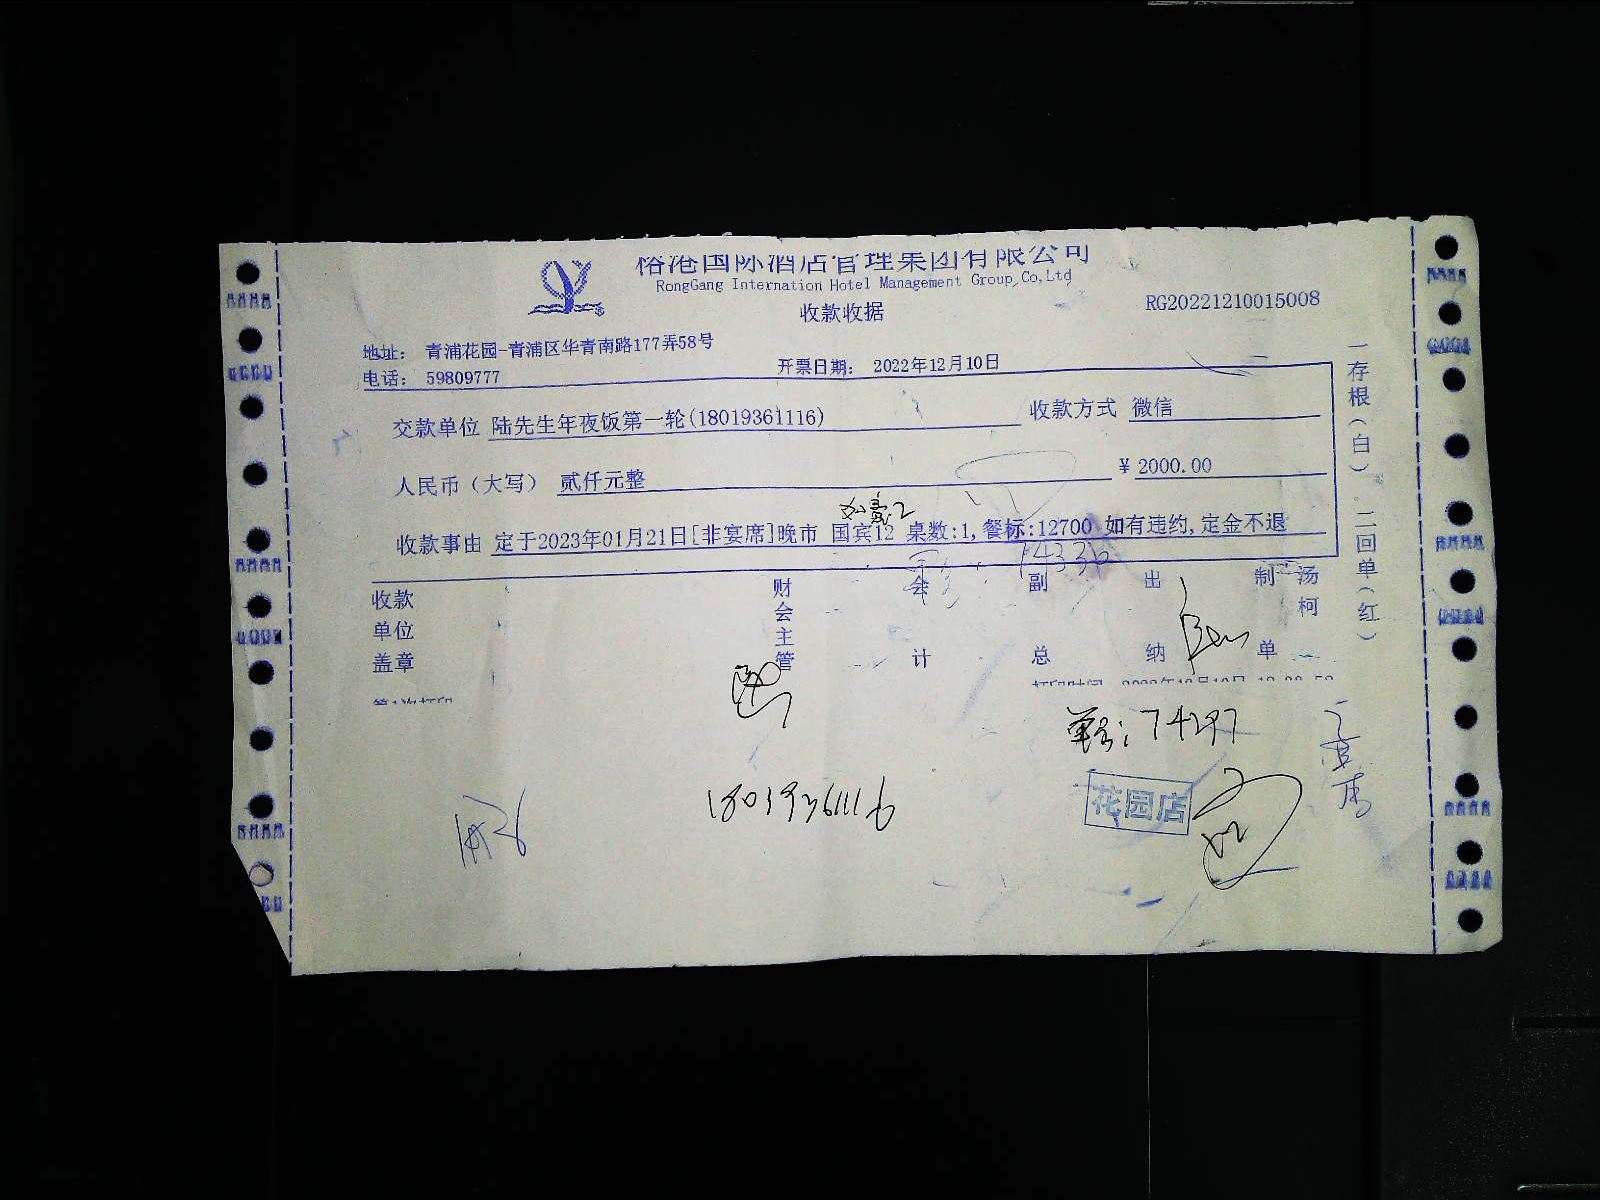 俗港国际酒店管理集团有限公司
RongGang Internation Hotel Management Group,Co,Ltd
收款收据
RG20221210015008
地址： 青浦花园-青浦区华青南路177弄58号
电话： 59809777
开票日期： 2022年12月10日
交款单位 陆先生年夜饭第一轮(18019361116)
收款方式 微信
人民币（大写） 贰仟元整
¥ 2000.00
收款事由 定于2023年01月21日[非宴席]晚市 国宾12 桌数:1,餐标:12700 如有违约,定金不退
一存根（白）.二回单（红）
收款单位盖章
财会主管
会计
副总
出纳
制单
汤柯
第1次打印
单号：74297
18019361116
花园店